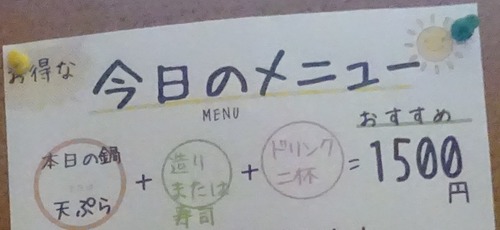 お得な
今日のメニュー
MENU
おすすめ
本日の鍋
天ぷら
+
造り
または
寿司
+
ドリンク
二杯
=
1500
円